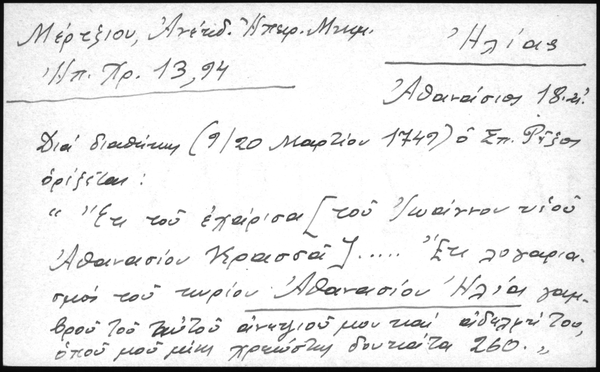 Μέρτζιου, Ἀνέκδ. Ἠπειρ. Μνημ.
Ἠπ. Χρ. 13,94
Ἠλίας
Ἀθανάσιος 18.αἰ.
Διά διαθήκης (9/20 Μαρτίου 1749) ὁ Σπ. Ρῖζος
ὁρίζεται:
"Ἔτι τοῦ ἐχάρισα [τοῦ Ἰωάννου υἱοῦ
Ἀθανασίου Κρασσᾶ]..... Ἔτι λογαρια-
σμός τοῦ κυρίου Ἀθανασίου Ἠλία γαμ-
βροῦ τοῦ αὐτοῦ ἀνεψιοῦ μου καί
ὁποῦ μοῦ χρεώστη δουκάτα 260."